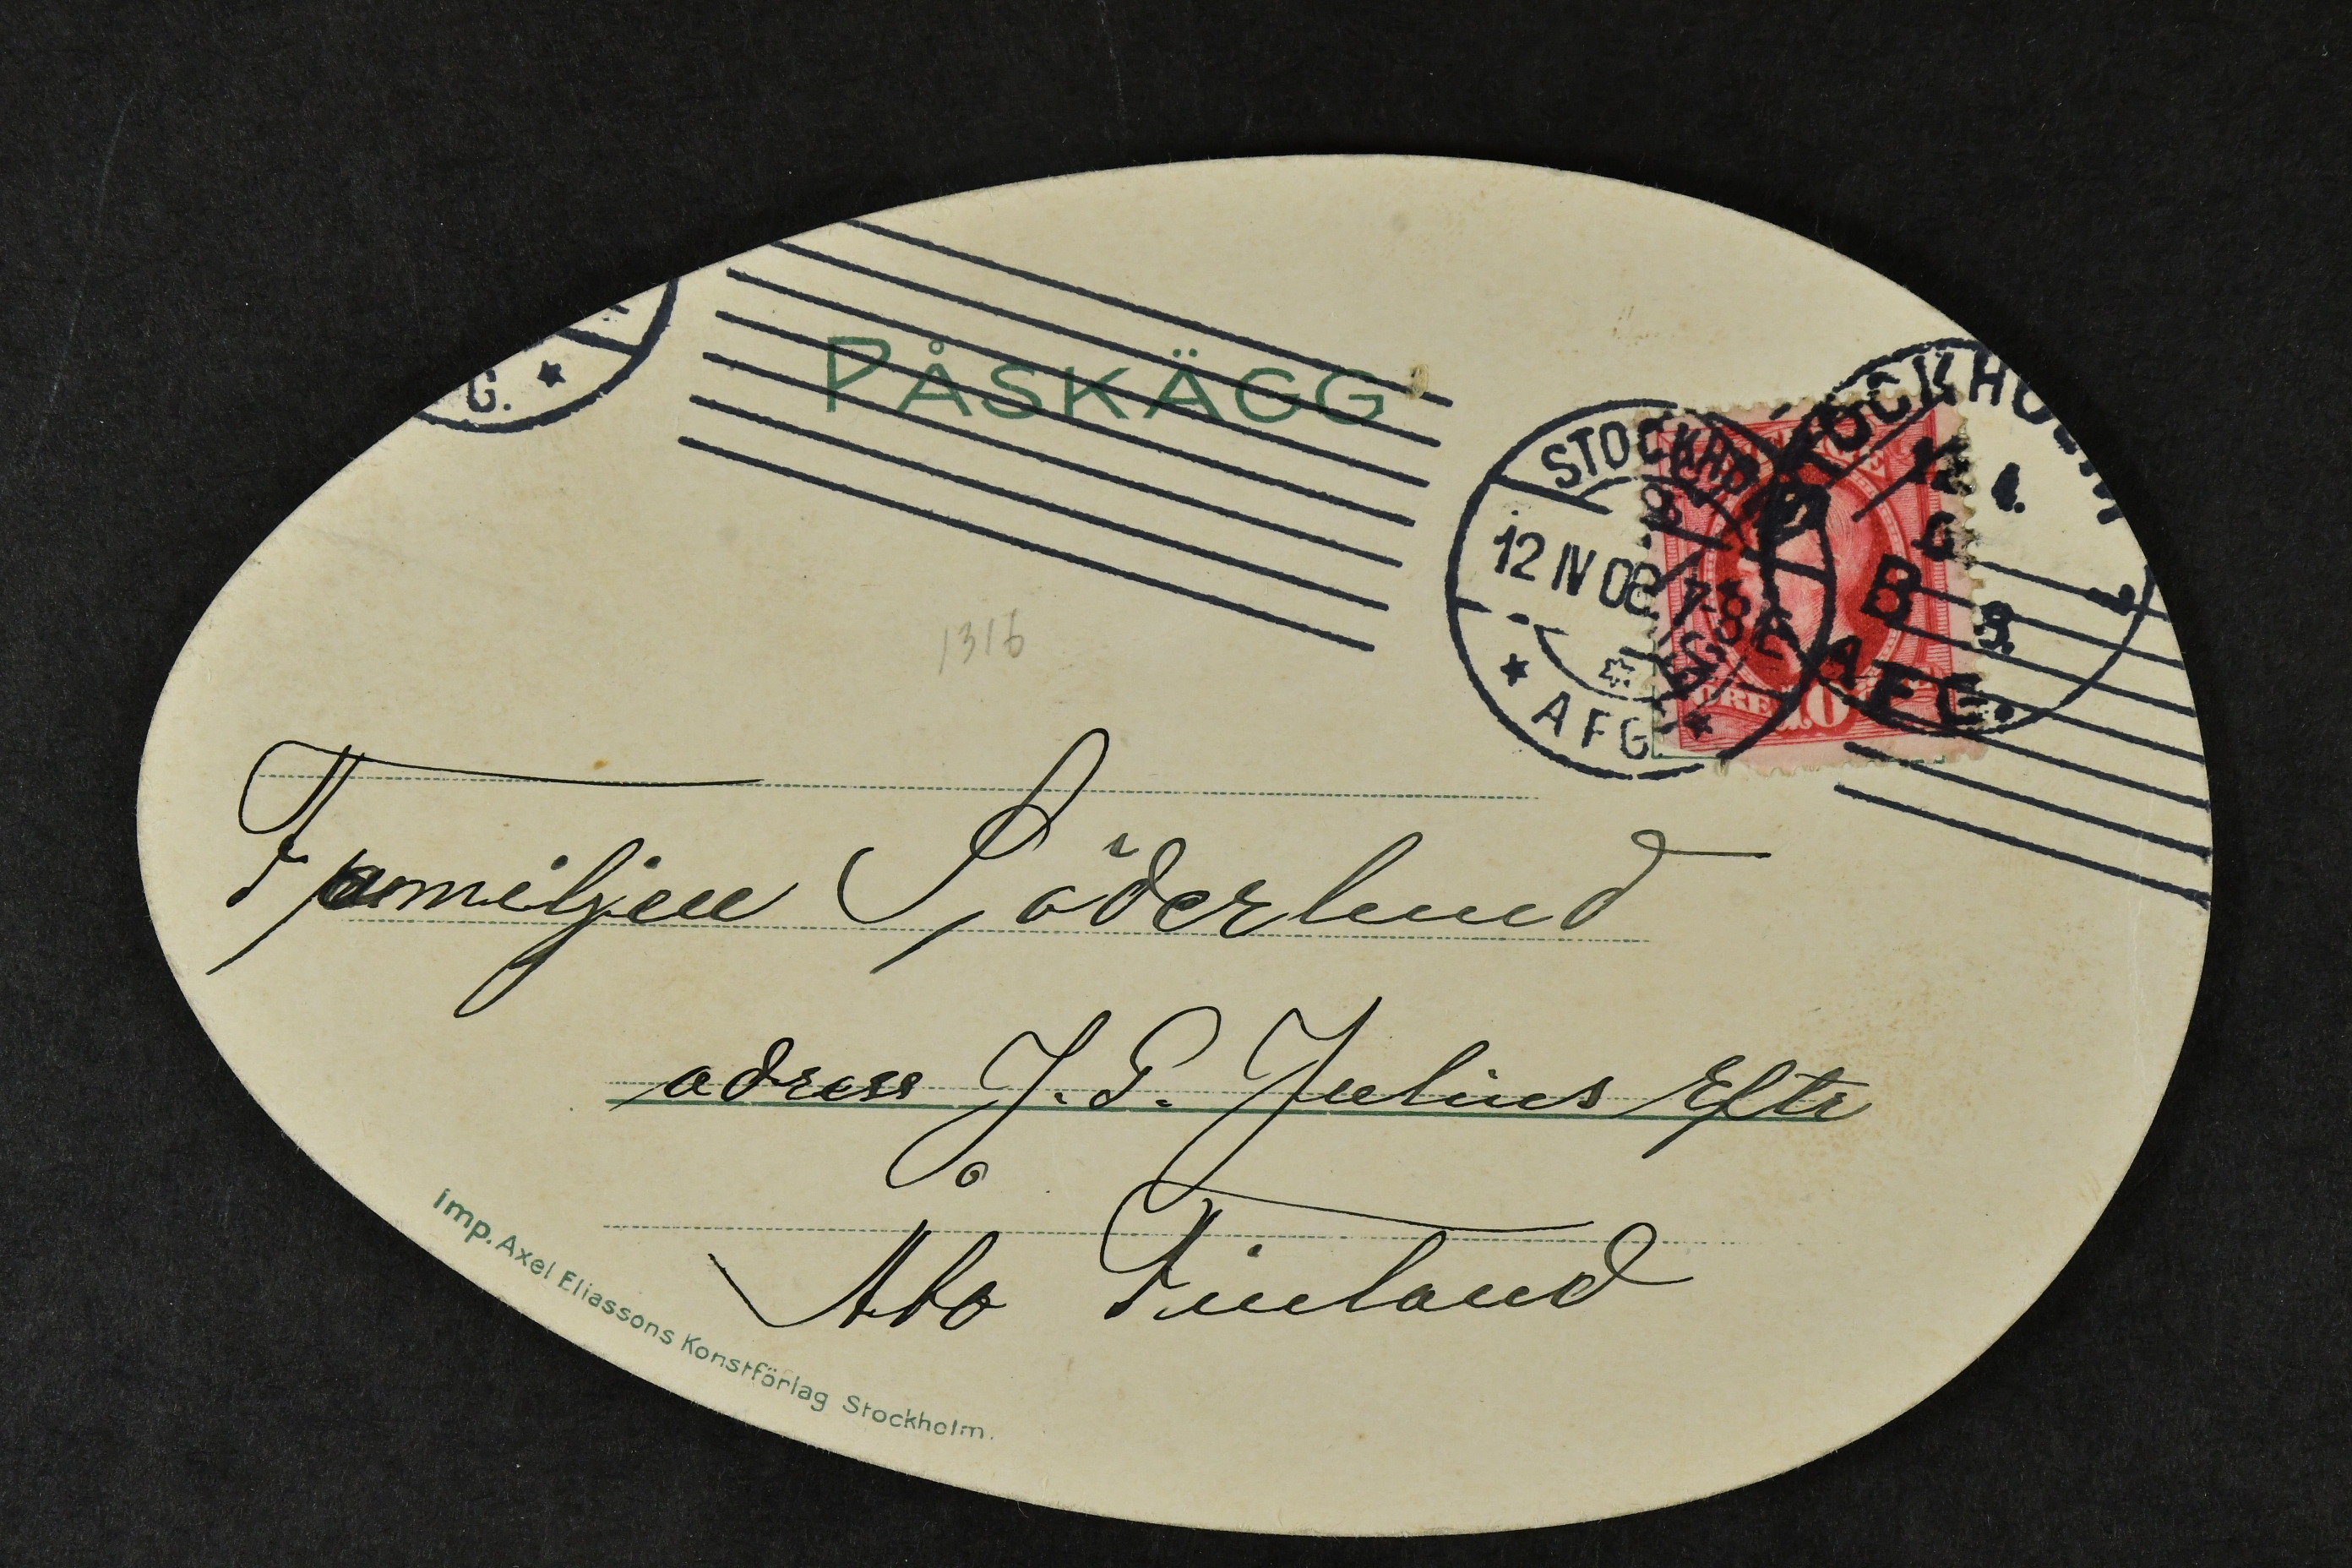 G.
PÅSKÄGG
STOCKHOLM
12 IV 08 7-8 E
AFG
STOCKHOLM
12. 4.
B
AFG.
10
1316
Familjen Söderlund
adress J. P. Julius Eftr
Åbo Finland
Imp. Axel Eliassons Konstförlag Stockholm.